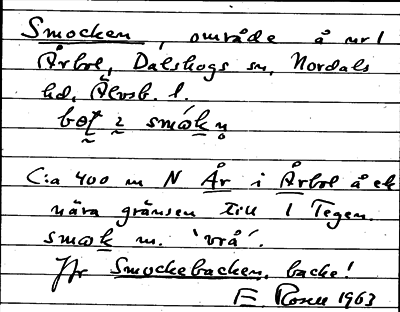 Smocken, område å nr 1
Årbol, Dalskogs sn, Nordals
hd, Älvsb. l.
bət 2 smɷkn̥
C:a 400 m N År i Årbol å ek
nära gränsen till 1 Tegen.
smɷk m. 'vrå'.
Jfr Smockebacken, backe!
E. Rosell 1963